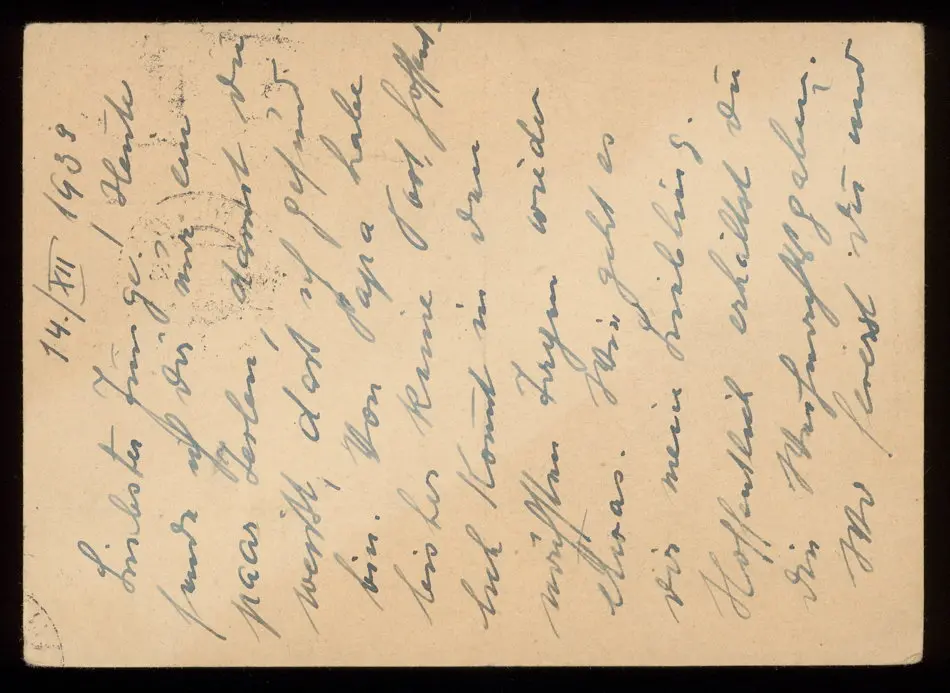 14./XII 1939
Liebster Junge! Heute
sende ich dir nur ein
paar Zeilen, damit du
weißt, dass ich gesund
bin. Von Papa habe
bisher keine Post, hoffent-
lich kommt in den
nächsten Tagen wieder
etwas. Wie geht es
dir mein Liebling.
Hoffentlich erhältst du
die Weihnachtsgaben.
Wo feierst du und